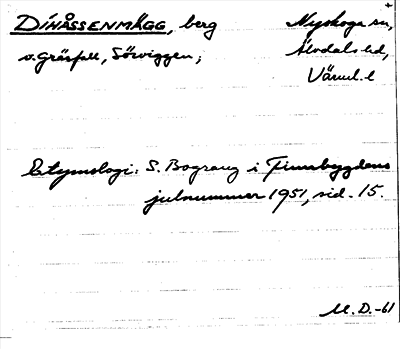 DÍHÅSSENMÄGG, berg
Nyskoga sn,
v. Gräsfall, Sörviggen;
Älvdals hd,
Värml. l
Etymologi: S. Bograng i Finnbygdens
julnummer 1951, sid. 15.
M. D. -61